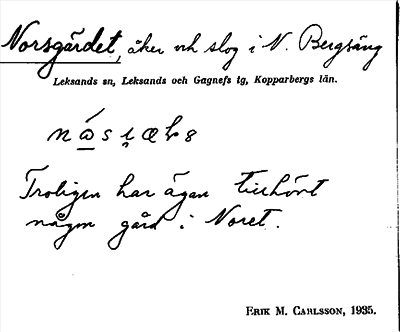 Norsgärdet, åker och slog i N. Bergsäng
Leksands sn, Leksands och Gagnefs tg, Kopparbergs län.
Troligen har ägan tillhört
någon gård i Noret.
ERIK M. CARLSSON, 1935.